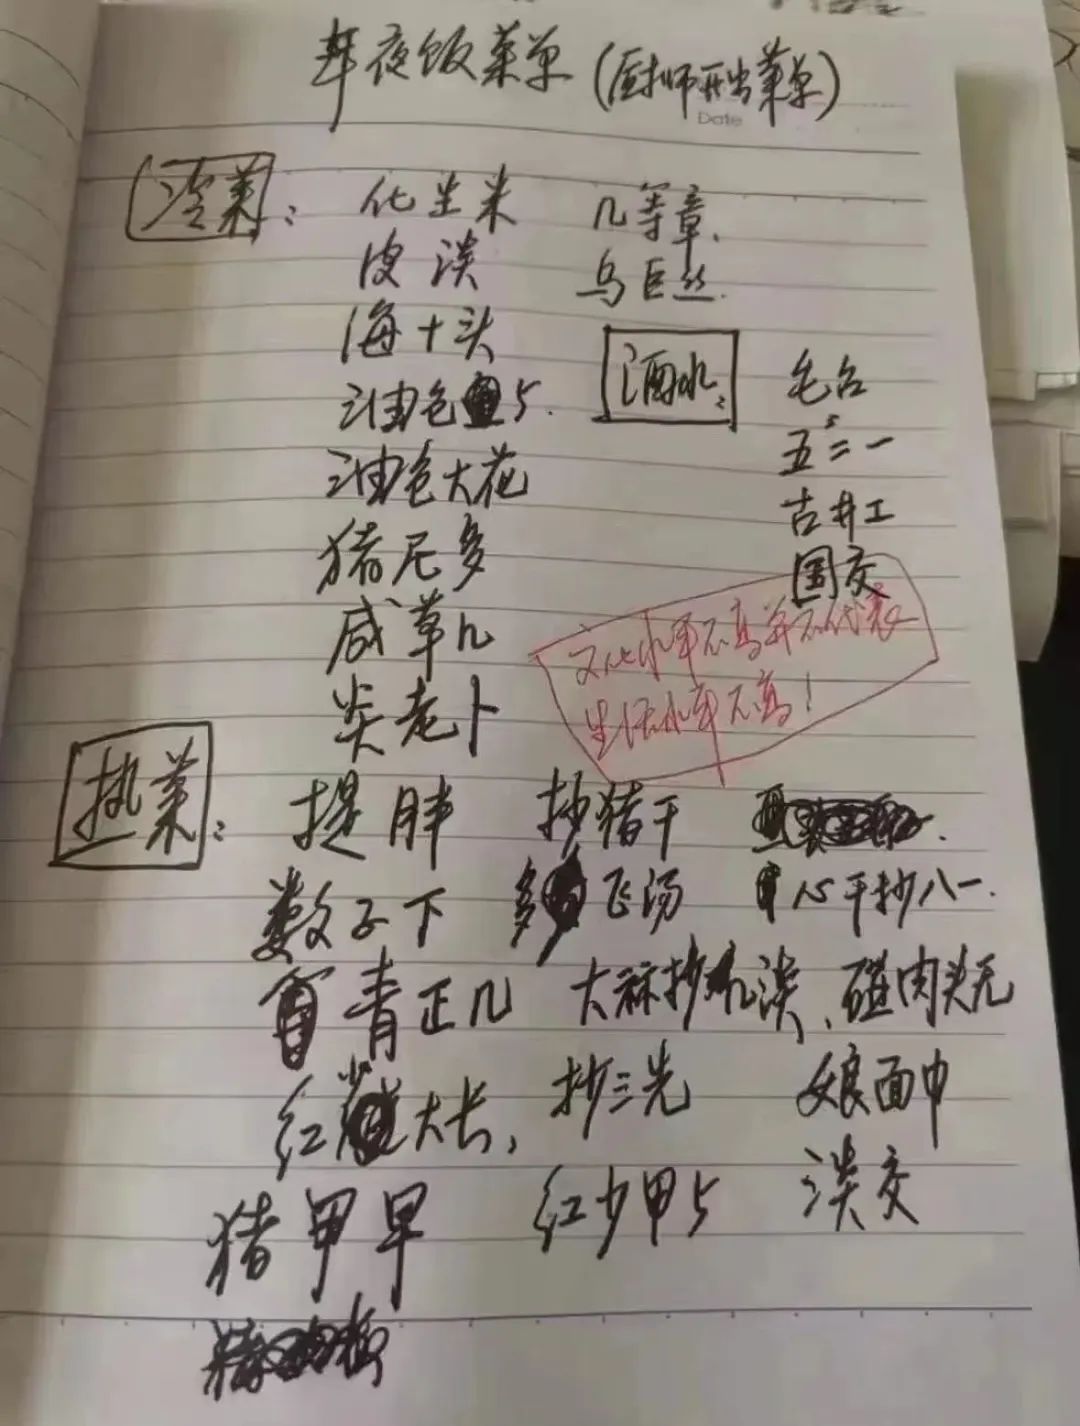 年夜饭菜单(厨师开出菜单)
Date
冷菜:
化生米
皮淡
海十头
油色鱼5.
油色大花
猪尼多
咸草几
炎老卜
几等章.
乌巨丝.
酒水:
毛台
五二一
古井工
国交
文化水平不高并不代表
生活水平不高!
热菜:
提胖
数子下
青正几
红烧大长,
猪甲早
抄猪干
多飞汤
大麻抄几淡、
抄三先
红少甲5
心干抄八一.
碰肉头无
娘面巾
淡交